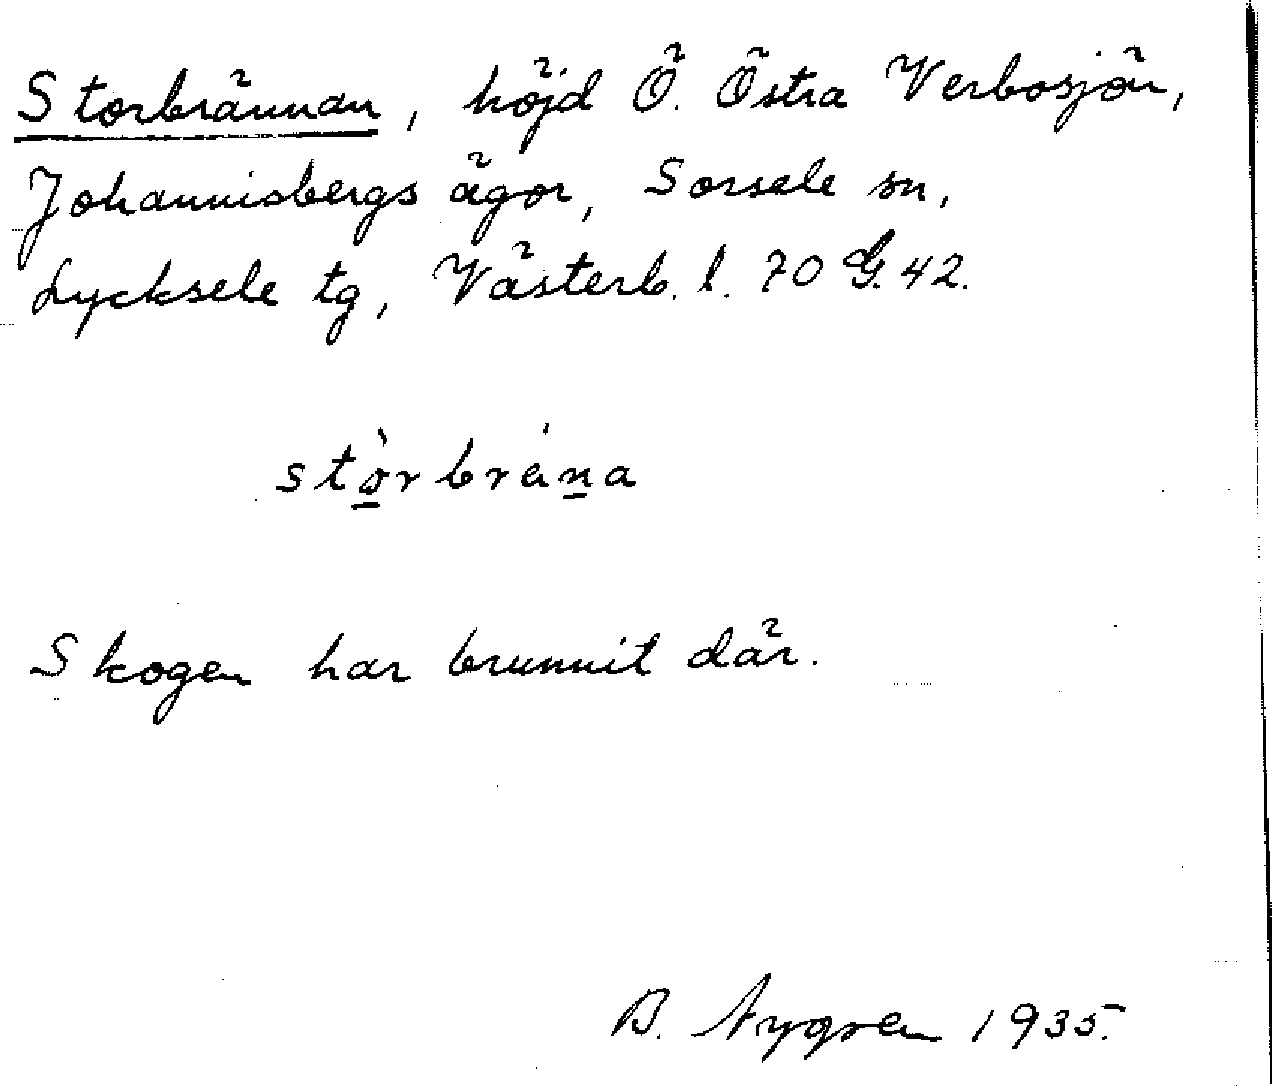 Storbrännan, höjd Ö. Östra Verbosjön,
Johannisbergs ägor, Sorsele sn,
Lycksele tg, Västerb. l. 70 G. 42.
stò̠rbrén̠a
Skogen har brunnit där.
B. Nygren 1935.